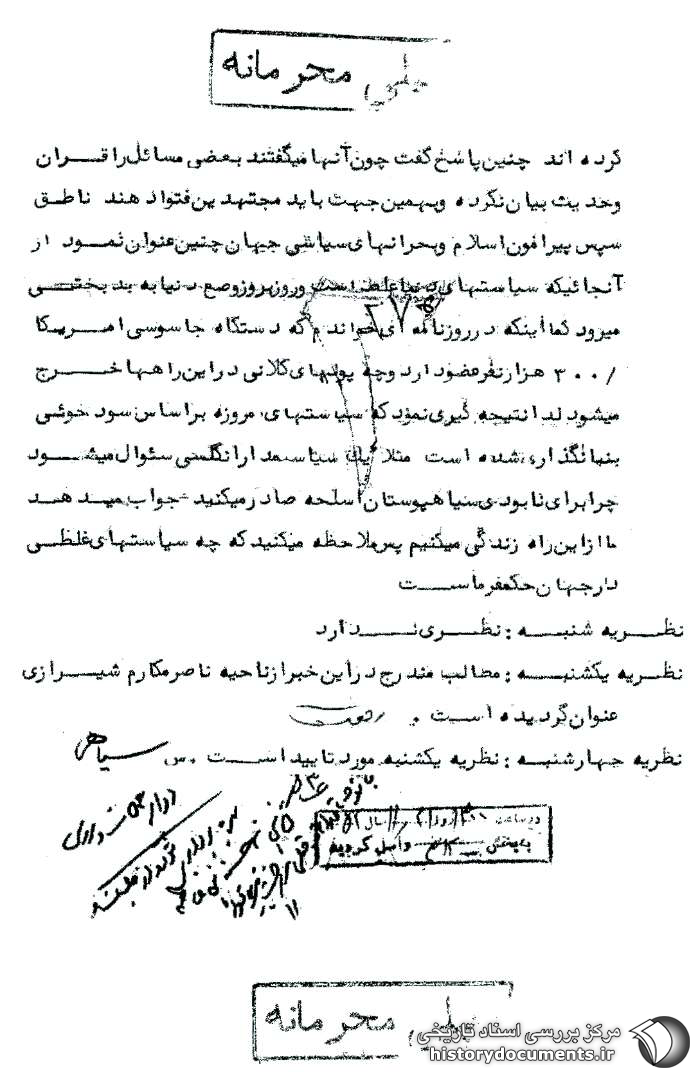 خیلی محرمانه
کرده اند چنین پاسخ گفت چون آنها میگفتند بعضی مسائل را قران
وحدیث بیان نکرده وبهمین جهت باید مجتهدین فتوا دهند ناطق
سپس پیرامون اسلام وبحرانهای سیاسی جهان چنین عنوان نمود از
آنجائیکه سیاستهای دنیا غلط است وروزبروز وضع دنیا به بدبختی
میرود کما اینکه درروزنامه ای خواندم که دستگاه جاسوسی امریکا
/۳۰۰ هزارنفرعضو دارد وچه پولهای کلانی دراین راهها خرج
میشود لذا نتیجه گیری نمود که سیاستهای امروزه براساس سود خوئی
بنیانگذاری شده است مثلا یک سیاستمدار انگلسی سئوال میشود
چرا برای نابودی سیاهپوستان اسلحه صادر میکنید جواب میدهد
ما ازاین راه زندگی میکنیم پس ملاحظه میکنید که چه سیاستهای غلطی
درجهان حکمفرماست
نظریه شنبه : نظری ندارد
نظریه یکشنبه : مطالب مندرج دراین خبر ازناحیه ناصر مکارم شیرازی
عنوان گردیده است .
نظریه چهارشنبه : نظریه یکشنبه مورد تایید است . س
در ساعت روز سال
به بخش ۳۱۲ واصل گردید
خیلی محرمانه
مرکز بررسی اسناد تاریخی
historydocuments.ir